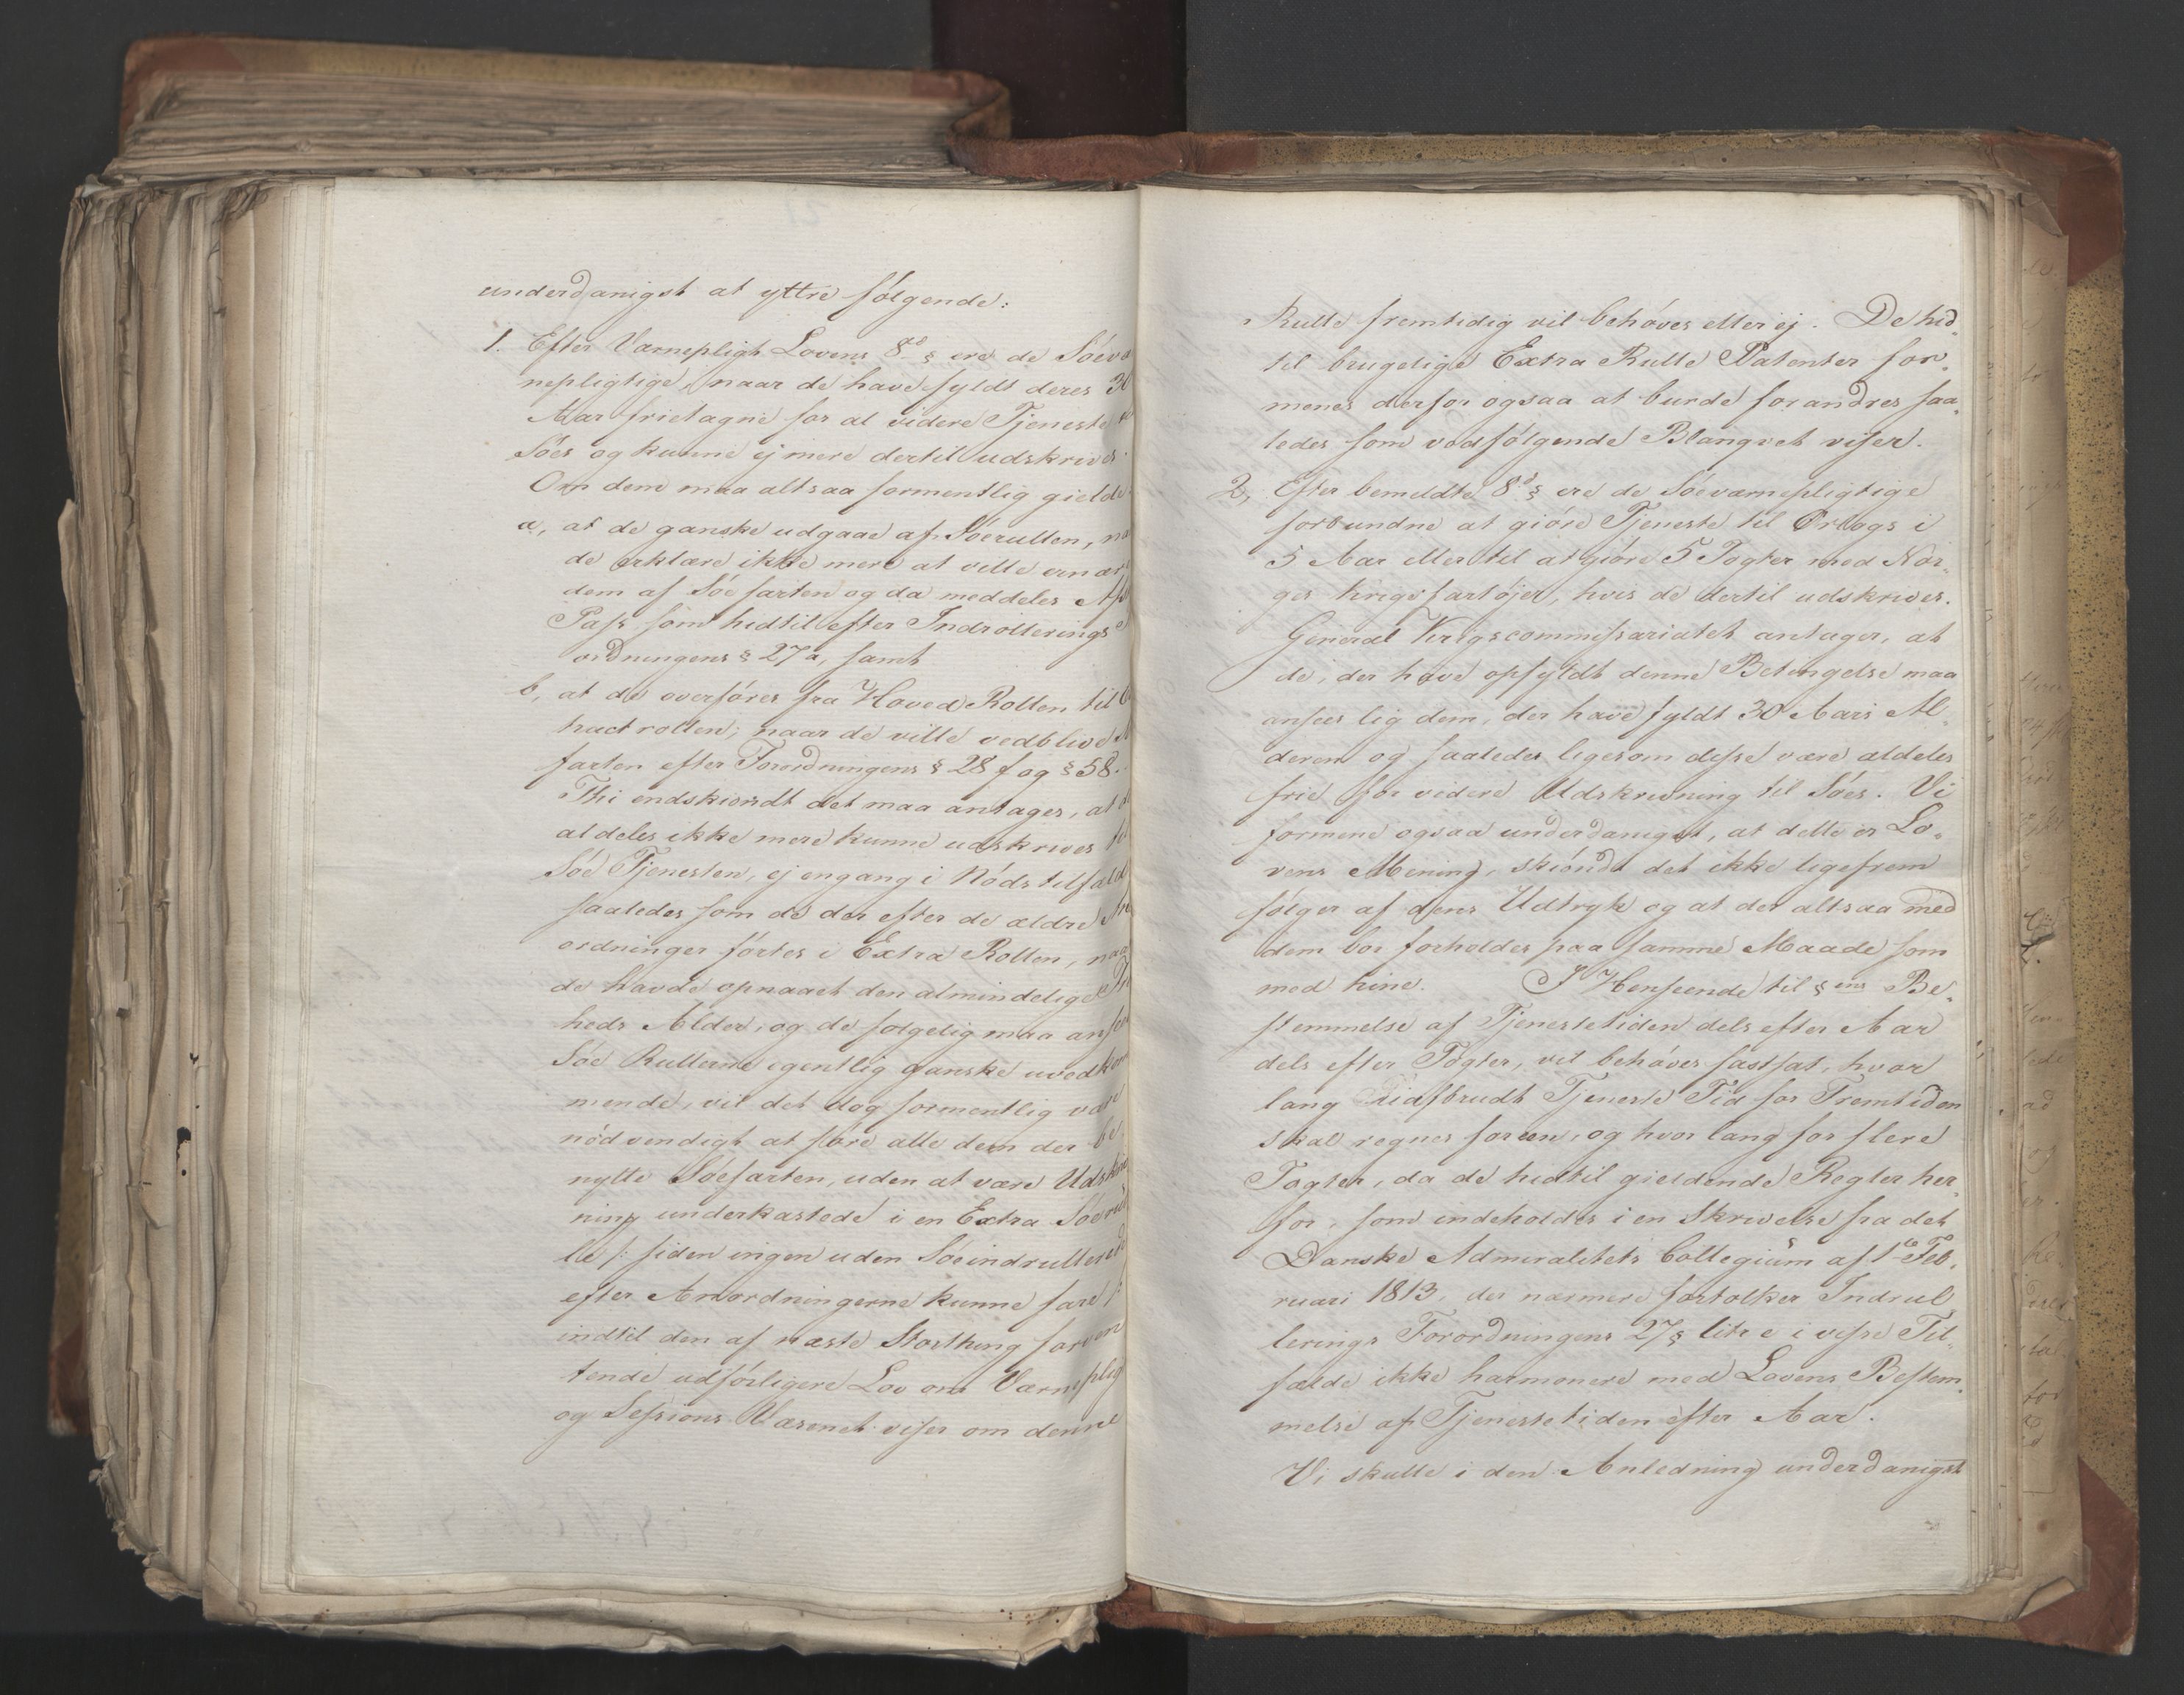 underdanigst at yttre følgende:
1. Efter Værnepligts Lovens 8de § ere de Søevær
nepligtige, naar de have fyldt deres 30
Aar frietagne for al videre Tjeneste
Søes og kunne ej mere dertil udskrives.
Om dem maa altsaa formentlig gielde
a, at de ganske udgaae af Søerullen, naa
de erklære ikke mere at ville ernære
dem af Søefarten og da meddeles Afs
Pass som hidtil efter Indrolleringsf
ordningens § 27 a, samt
b, at de overføres fra Hoved Rollen til
huct rollen, naar de ville vedblive
farten efter Forordningens § 28 f og § 58.
Thi endskiøndt det maa antages, at
aldeles ikke mere kunne udskrives til
Søe Tjenesten, ej engang i Nødstilfæld
saaledes som de der efter de ældre An
ordninger førtes i Extra Rollen, naar
de havde opnaaet den almindelige Frie
heds Alder, og de følgelig maa ansees
Søe Rullerne egentlig ganske uvedkom
mende, vil det dog formentlig være
nødvendigt at føre alle dem der be
nytte Søefarten, uden at være Udskriv
ning underkastede i en Extra Søerul
le /: siden ingen uden Søeindrullerede
efter Anordningerne kunne fare :/
indtil den af næste Storthing forven
tende udførligere Lov om Værneplig
og Sessions Væsenet viser om denne
Rulle fremtidig vil behøves eller ej. De hid-
til brugelige Extra Rulle Patenter for-
menes derfor ogsaa at burde forandres saa-
ledes som vedfølgende Blanqvet viser.
2, Efter bemeldte 8de § ere de Søeværnepligtige
forbundne at giøre Tjeneste til Orlogs i
5 Aar eller til at giøre 5 Togter med Nor-
ges Krigsfartøjer, hvis de dertil udskrives.
General Krigscommissariatet antager, at
de, der have opfyldt denne Betingelse maa
ansees lig dem, der have fyldt 30 Aars Al-
deren og saaledes ligesom disse være aldeles
frie for videre Udskrivning til Søes. Vi
formene ogsaa underdanigst, at dette er Lo-
vens Mening, skiøndt det ikke ligefrem
følger af dens Udtryk og at der altsaa med
dem bør forholdes paa samme Maade som
med hine. I Henseende til § ens Be-
stemmelse af Tjenestetiden dels efter Aar
dels efter Togter, vil behøves fastsat, hvor
lang uafbrudt Tjeneste Tid for Fremtiden
skal regnes for een, og hvor lang for flere
Togter, da de hidtil gieldende Regler her-
for, som indeholdes i en Skrivelse fra det
Danske Admiralitets Collegium af 1e Feb-
ruari 1813, der nærmere fortolker Indrul
lerings Forordningens 27 § litr e i visse Til-
fælde ikke harmonere med Lovens Bestem-
melse af Tjenestetiden efter Aar.
Vi skulle i den Anledning underdanigst